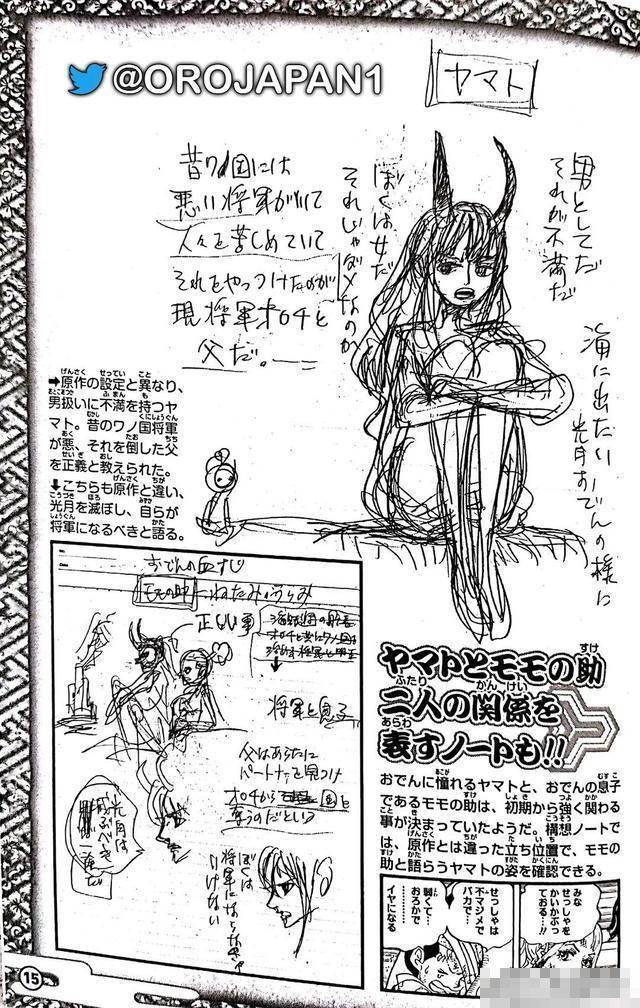 @OROJAPAN1
ヤマト
男としてだ
それが不満だ
ぼくは女だ
それじゃダメなのか
海に出たい
光月おでんの様に
昔ワノ国には
悪い将軍がいて
人々を苦しめていて
それをやっつけたのが
現将軍オロチと
父だ。
➡原作の設定と異なり、
男扱いに不満を持つヤ
マト。昔のワノ国将軍
が悪、それを倒した父
を正義と教えられた。
⬇こちらも原作と違い、
光月を滅ぼし、自らが
将軍になるべきと語る。
おでんの血すじ
モモの助
ねたみ
将軍と息子
父はあらたに
パートナーを見つけ
オロチから
国を
奪うのだという
光月は
滅ぶべき
ぼくは
将軍にならなきゃ
いけない
ヤマトとモモの助
二人の関係を
表すノートも!!
おでんに憧れるヤマトと、おでんの息子
であるモモの助は、初期から強く関わる
事が決まっていたようだ。構想ノートで
は、原作とは違った立ち位置で、モモの
助と語らうヤマトの姿を確認できる。
みな
せっしゃを
かいかぶっ
ておる…!!
せっしゃは
不マジメで
バカで…
弱くて…
おろかで
イヤになる
15